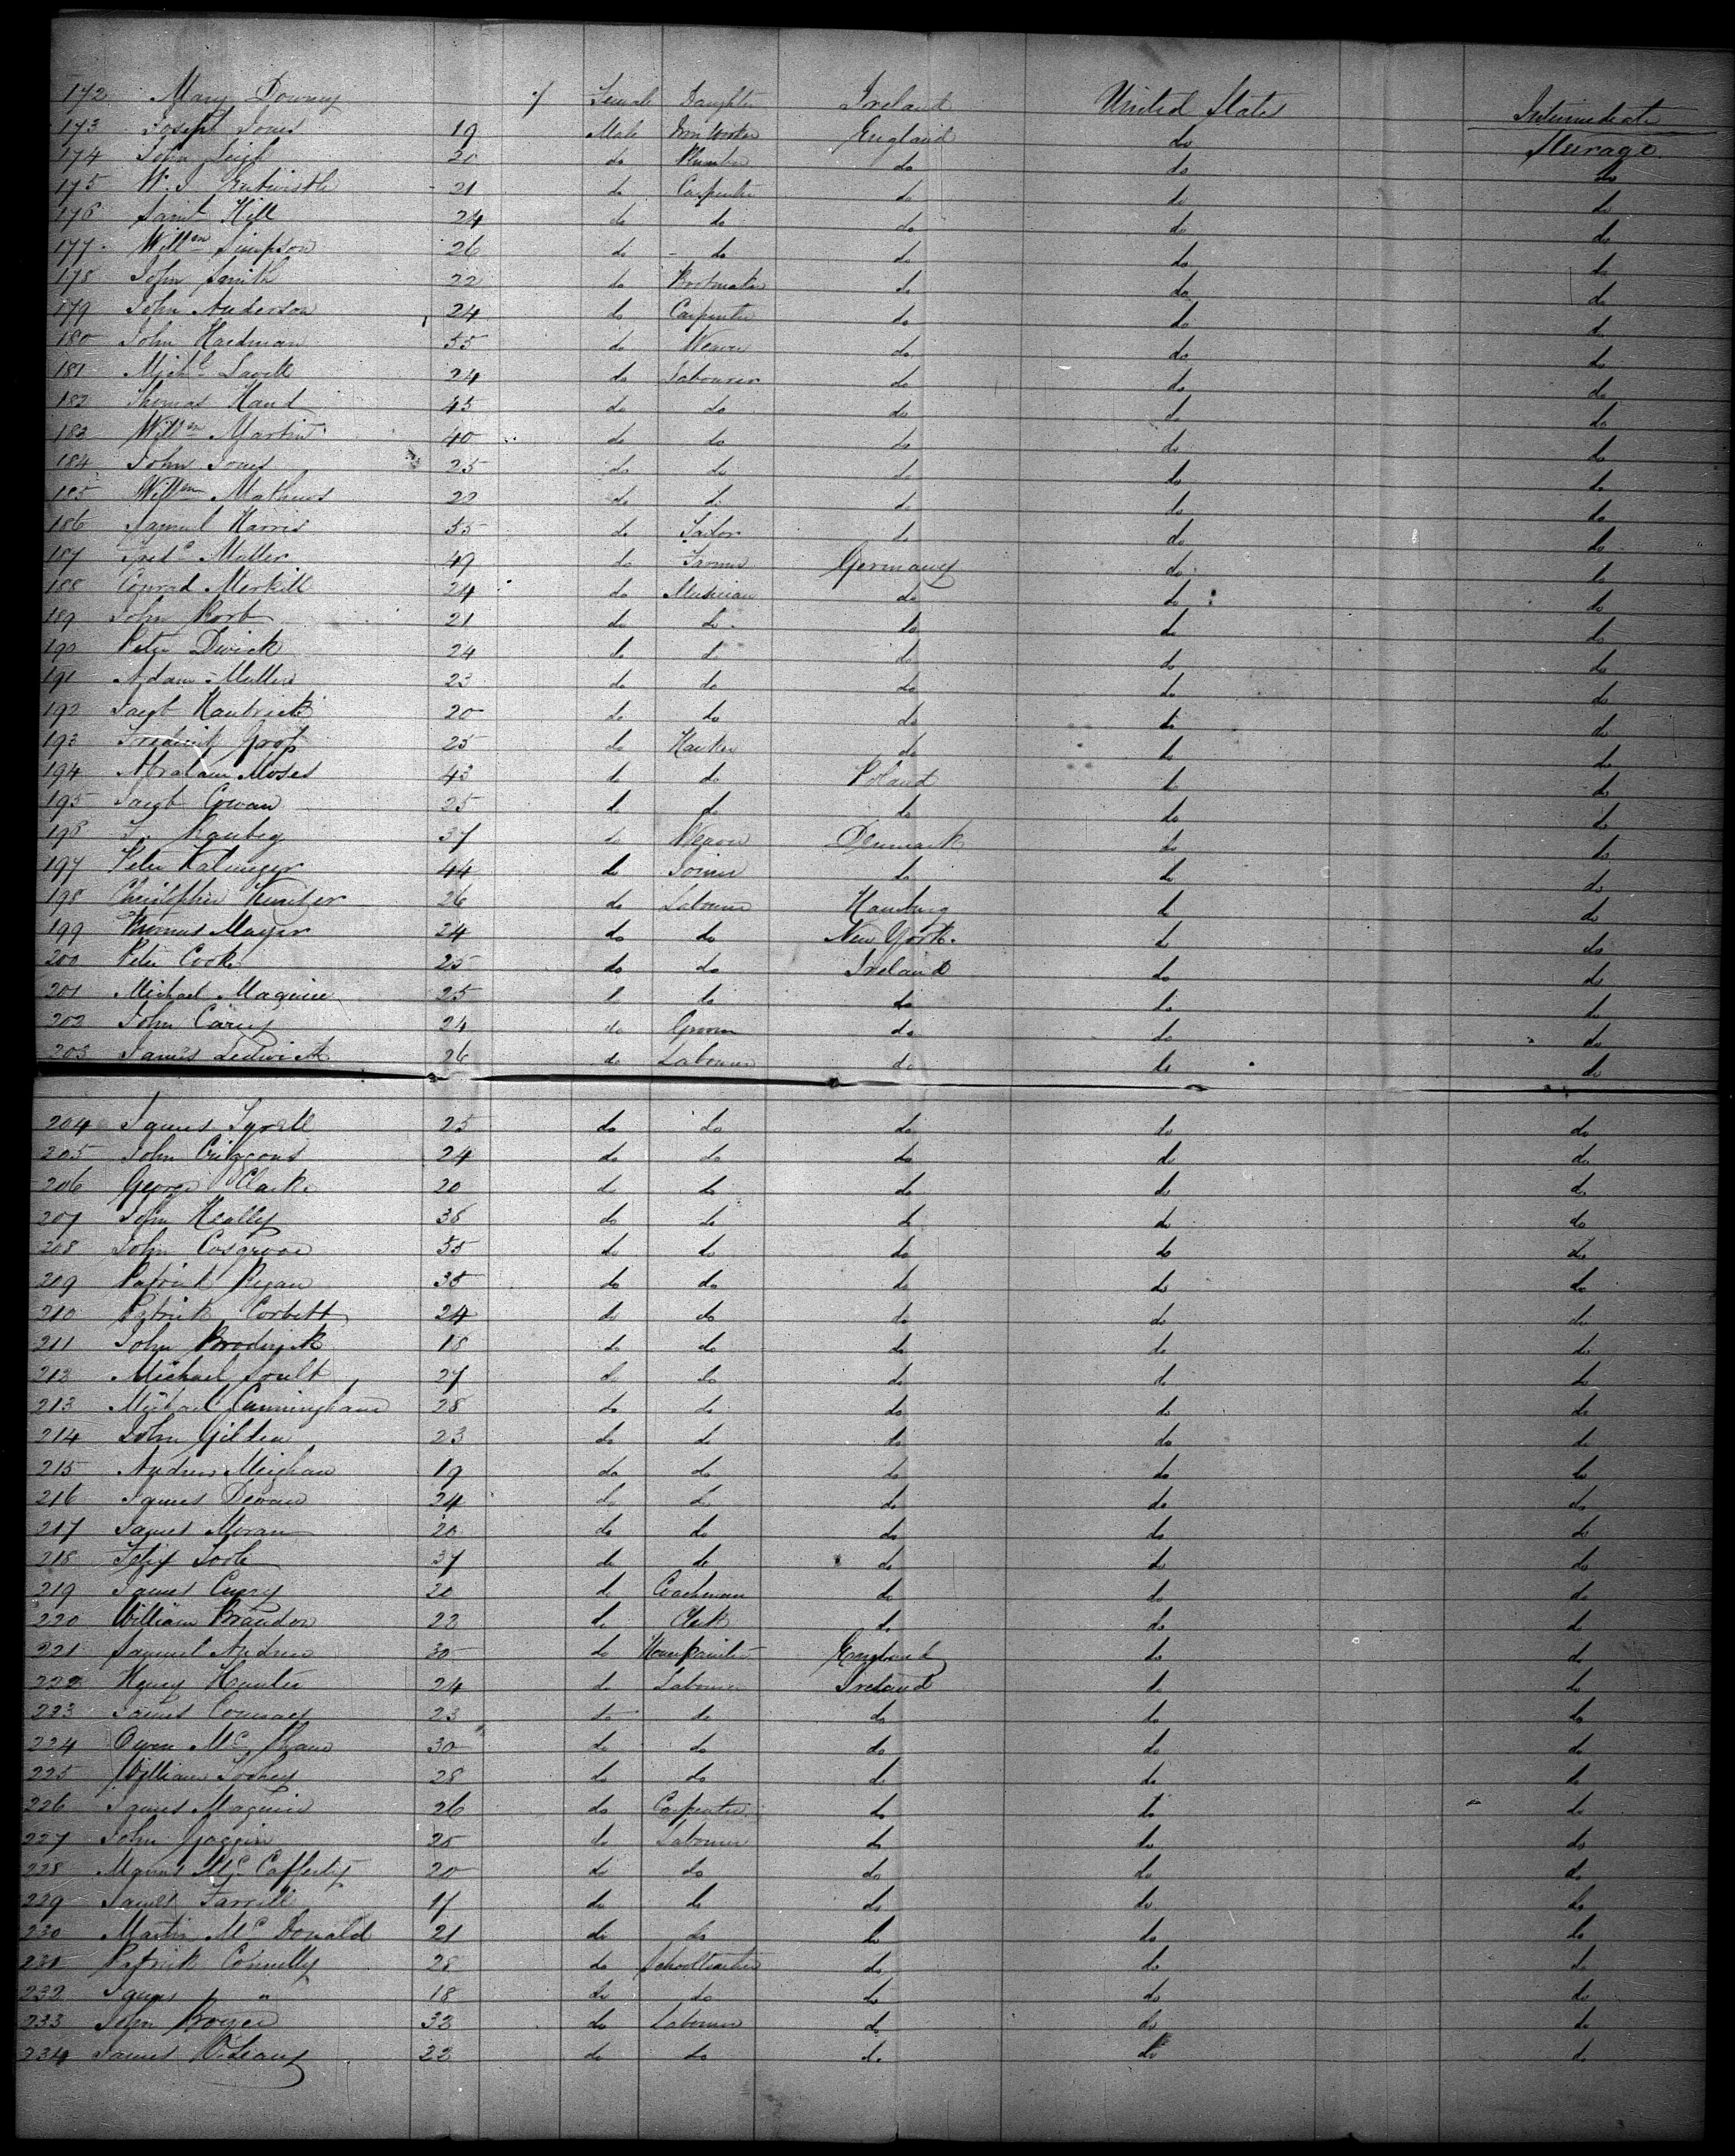 172 Mary Downey 7 Female Daughter Ireland United States Intermediate
173 Joseph Jones 19 Male Iron Worker England do Steerage
174 John Leigh 20 do Plumber do do do
175 W. J. Entwistle 21 do Carpenter do do do
176 Saml Hill 24 do do do do do
177 Willm Simpson 26 do do do do do
178 John Smith 22 do Bootmaker do do do
179 John Anderson 24 do Carpenter do do do
180 John Hardman 55 do Weaver do do do
181 Michl Lavelle 24 do Labourer do do do
182 Thomas Hand 45 do do do do do
183 Willm Martin 40 do do do do do
184 John Jones 25 do do do do do
185 Willm Mathews 22 do do do do do
186 Samuel Harris 55 do Tailor do do do
187 Fredc Muller 49 do Farmer Germany do do
188 Conrad Merkill 24 do Musician do do do
189 John Korb 21 do do do do do
190 Peter Dwick 24 do do do do do
191 Adam Muller 23 do do do do do
192 Jacob Hautrick 20 do do do do do
193 Frederick Gross 25 do Hawker do do do
194 Abraham Moses 43 do do Poland do do
195 Jacob Cowan 25 do do do do do
196 Ranbeg 37 do Weaver Denmark do do
197 Peter 44 do Joiner do do do
198 Christopher 26 do Labourer Hamburg do do
199 Thomas Mayer 24 do do New York. do do
200 Peter Cooke 25 do do Ireland do do
201 Michael Maguire 25 do do do do do
202 John Carey 24 do Groom do do do
203 James Ledwick 26 do Labourer do do do
204 James Tyrell 25 do do do do do
205 John 24 do do do do do
206 George Clarke 20 do do do do do
207 John Heally 38 do do do do do
208 John Cosgrove 55 do do do do do
209 Patrick Ryan 35 do do do do do
210 Patrick Corbett 24 do do do do do
211 John Broderick 18 do do do do do
212 Michael Soult 27 do do do do do
213 Michael Cunningham 28 do do do do do
214 John Gildea 23 do do do do do
215 Andrew Meighan 19 do do do do do
216 James Devan 24 do do do do do
217 James Moran 20 do do do do do
218 Felix Toole 37 do do do do do
219 James Curry 20 do Coachman do do do
220 William Brandon 22 do Clerk do do do
221 Samuel Andrew 30 do House Painter England do do
222 Henry Hunter 24 do Labourer Ireland do do
223 James Conway 23 do do do do do
224 Owen Mc Shane 30 do do do do do
225 William Toohey 28 do do do do do
226 James Maguire 26 do Carpenter do do do
227 John Goggin 25 do Labourer do do do
228 Manus Mc Cafferty 20 do do do do do
229 James Farrell 17 do do do do do
230 Martin Mc Donald 21 do do do do do
231 Patrick Connelly 28 do Schoolteacher do do do
232 James " " 18 do do do do do
233 John Bowyer 32 do Labourer do do do
234 James O'Leary 22 do do do do do